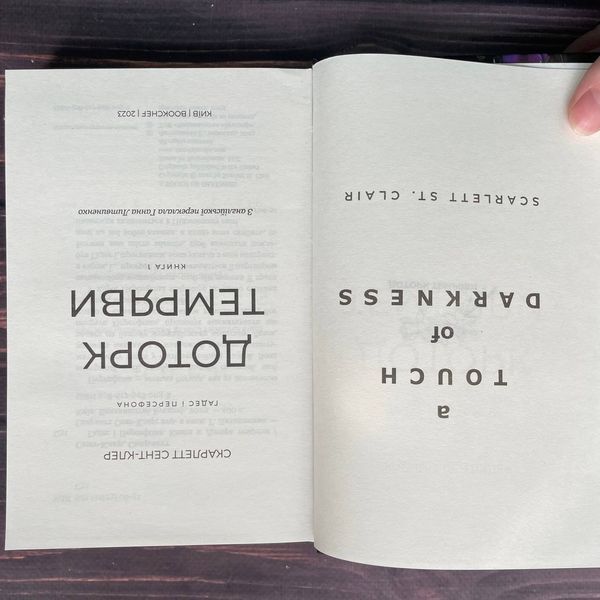 a
TOUCH
of
DARKNESS
SCARLETT ST. CLAIR
СКАРЛЕТТ СЕНТ-КЛЕР
ГАДЕС І ПЕРСЕФОНА
ДОТОРК
ТЕМРЯВИ
КНИГА 1
З англійської переклала Ганна Литвиненко
КИЇВ | BOOKCHEF | 2023